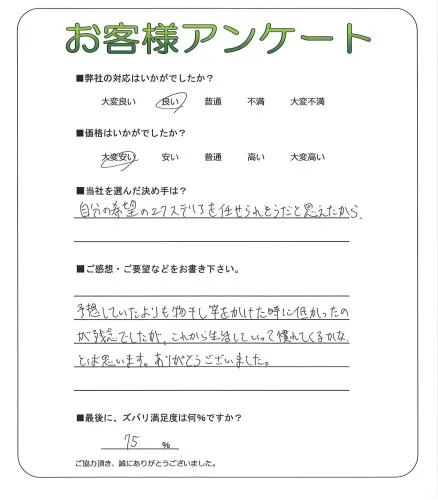 お客様アンケート
■弊社の対応はいかがでしたか?
大変良い 良い 普通 不満 大変不満
■価格はいかがでしたか?
大変安い 安い 普通 高い 大変高い
■当社を選んだ決め手は?
自分の希望のエクステリアを任せられそうだと思えたから.
■ご感想・ご要望などをお書き下さい。
予想していたよりも物干し竿をかけた時に低かったの
が残念でしたが、これから生活していって慣れてくるかな、
とは思います。ありがとうございました。
■最後に、ズバリ満足度は何%ですか?
75 %
ご協力頂き、誠にありがとうございました。